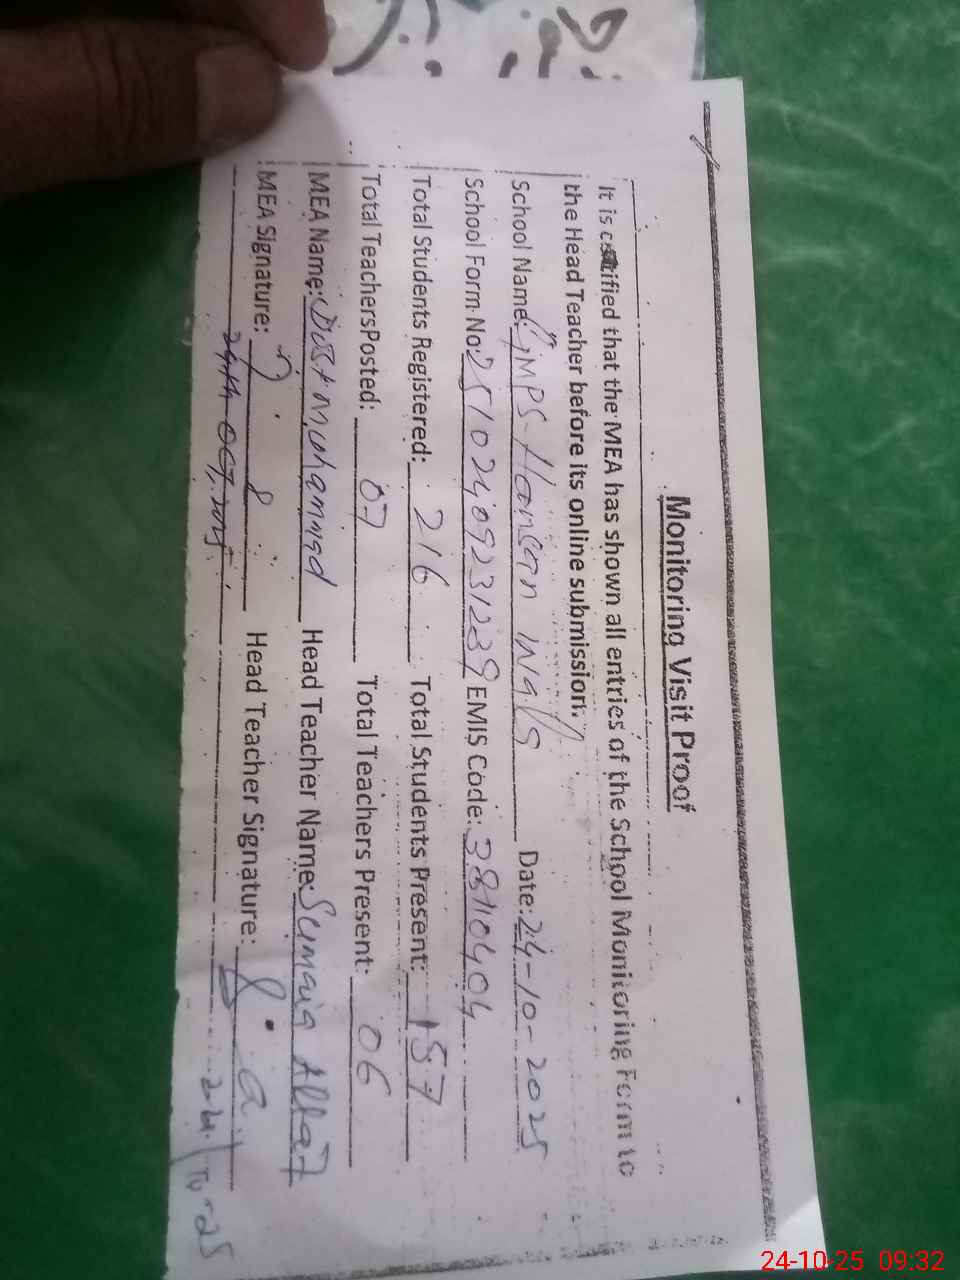 Monitoring Visit Proof
It is certified that the MEA has shown all entries of the School Monitoring Form to
the Head Teacher before its online submission.
School Name: GMPS-Hassan Walls Date: 24-10-2025
School Form No: 25102409231239 EMIS Code: 38110404
Total Students Registered: 216 Total Students Present: 157
Total TeachersPosted: 07 Total Teachers Present: 06
MEA Name: Dost Muhammad Head Teacher Name: Sumaia Altaf
MEA Signature: Head Teacher Signature:
24th OCT, 2025 24/10-25
24-10-25 09:32